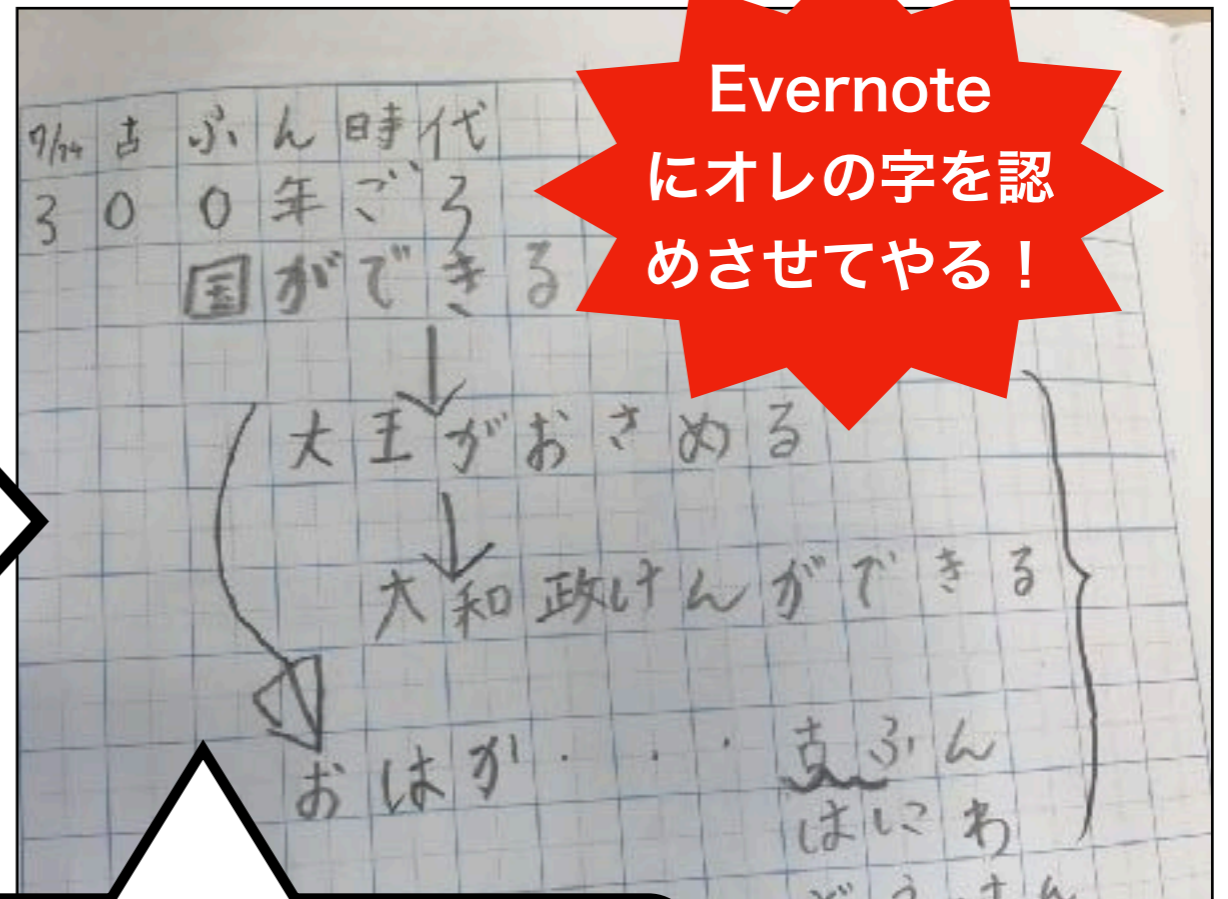 Evernote
にオレの字を認
めさせてやる！
7/24 古ぶん時代
300年ごろ
国ができる
大王がおさめる
大和政けんができる
おはか・・・古ぶん
はにわ